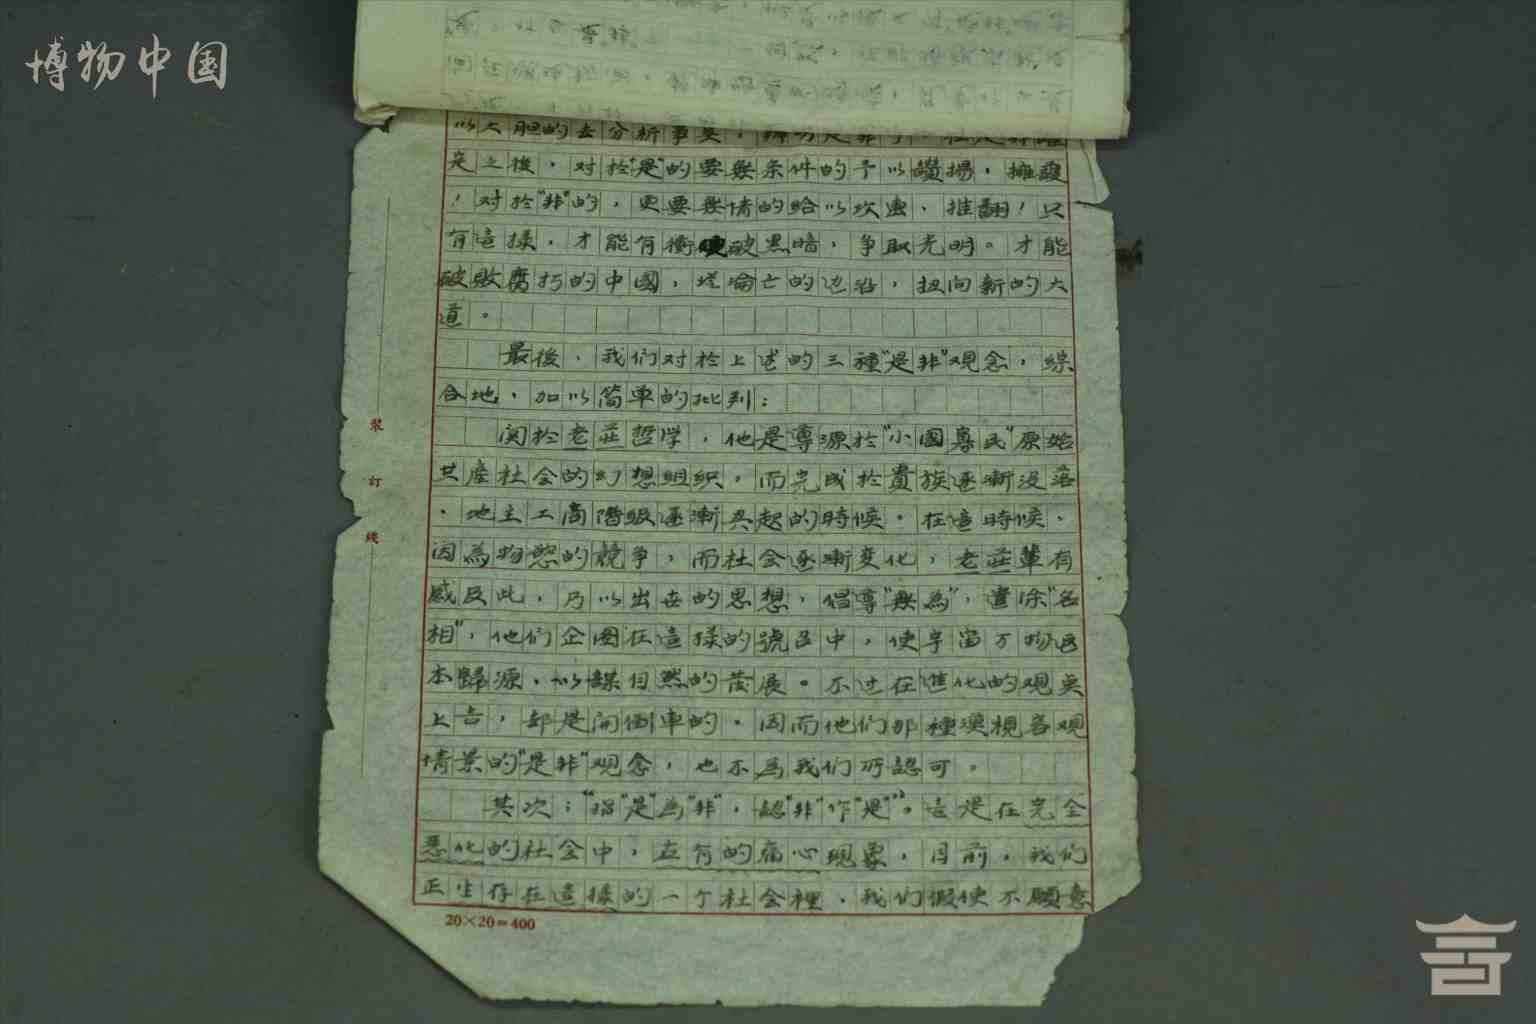 博物中国
以大胆的去分析事实，辨明是非
定之後，对於"是"的要無条件的予以讚揚，擁護
！对於"非"的，更要無情的給以攻击、推翻！只
有這樣，才能有衝破黑暗，争取光明。才能
破敗腐朽的中國，淪亡的边沿，扭向新的大
道。
最後，我们对於上述的三種"是非"观念，綜
合地，加以简单的批判：
関於老莊哲学，他是導源於"小國寡民"原始
共産社会的幻想组织，而完成於貴族逐漸没落
、地主工商階級逐漸興起的時候。在這時候，
因為物慾的競争，而社会逐漸变化，老莊輩有
感及此，乃以出世的思想，倡導"無為"，遣除"名
相"，他们企图在這樣的號召中，使宇宙万物返
本歸源，以謀自然的發展。不过在進化的观点
上言，却是開倒車的。因而他们那種漠視客观
情景的"是非"观念，也不為我们所認可。
其次："指"是"為"非"，認"非"作"是""。這是在完全
恶化的社会中，应有的痛心現象，目前，我们
正生存在這樣的一个社会裡，我们假使不願意
20×20=400
装
訂
綫